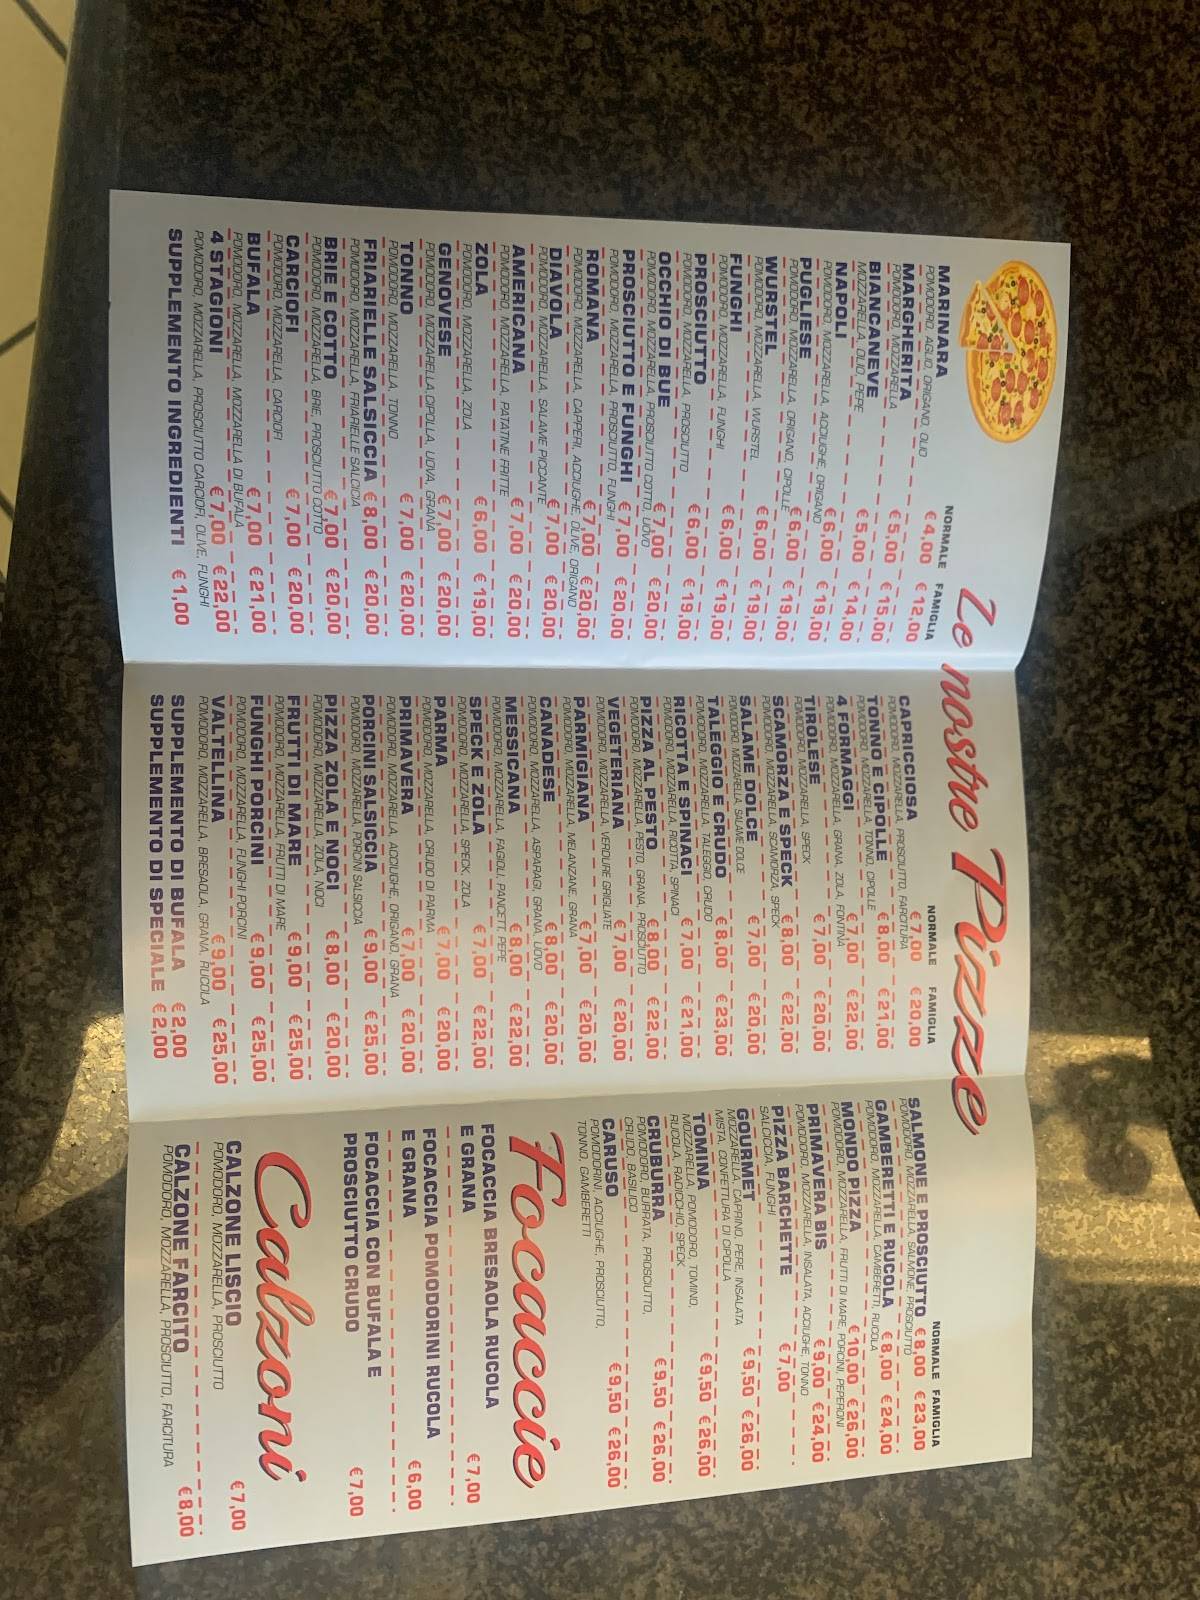 Le nostre Pizze
NORMALE FAMIGLIA
MARINARA € 4,00 € 12,00
POMODORO, AGLIO, ORIGANO, OLIO
MARGHERITA € 5,00 € 15,00
POMODORO, MOZZARELLA
BIANCANEVE € 5,00 € 14,00
MOZZARELLA, OLIO, PEPE
NAPOLI € 6,00 € 19,00
POMODORO, MOZZARELLA, ACCIUGHE, ORIGANO
PUGLIESE € 6,00 € 19,00
POMODORO, MOZZARELLA, ORIGANO, CIPOLLE
WURSTEL € 6,00 € 19,00
POMODORO, MOZZARELLA, WURSTEL
FUNGHI € 6,00 € 19,00
POMODORO, MOZZARELLA, FUNGHI
PROSCIUTTO € 6,00 € 19,00
POMODORO, MOZZARELLA, PROSCIUTTO
OCCHIO DI BUE € 7,00 € 20,00
POMODORO, MOZZARELLA, PROSCIUTTO COTTO, UOVO
PROSCIUTTO E FUNGHI € 7,00 € 20,00
POMODORO, MOZZARELLA, PROSCIUTTO, FUNGHI
ROMANA € 7,00 € 20,00
POMODORO, MOZZARELLA, CAPPERI, ACCIUGHE, OLIVE, ORIGANO
DIAVOLA € 7,00 € 20,00
POMODORO, MOZZARELLA, SALAME PICCANTE
AMERICANA € 7,00 € 20,00
POMODORO, MOZZARELLA, PATATINE FRITTE
ZOLA € 6,00 € 19,00
POMODORO, MOZZARELLA, ZOLA
GENOVESE € 7,00 € 20,00
POMODORO, MOZZARELLA, CIPOLLA, UOVA, GRANA
TONNO € 7,00 € 20,00
POMODORO, MOZZARELLA, TONNO
FRIARIELLE SALSICCIA € 8,00 € 20,00
POMODORO, MOZZARELLA, FRIARIELLE SALCICIA
BRIE E COTTO € 7,00 € 20,00
POMODORO, MOZZARELLA, BRIE, PROSCIUTTO COTTO
CARCIOFI € 7,00 € 20,00
POMODORO, MOZZARELLA, CARCIOFI
BUFALA € 7,00 € 21,00
POMODORO, MOZZARELLA, MOZZARELLA DI BUFALA
4 STAGIONI € 7,00 € 22,00
POMODORO, MOZZARELLA, PROSCIUTTO CARCIOFI, OLIVE, FUNGHI
SUPPLEMENTO INGREDIENTI € 1,00
NORMALE FAMIGLIA
CAPRICCIOSA € 7,00 € 20,00
POMODORO, MOZZARELLA, PROSCIUTTO, FARCITURA
TONNO E CIPOLLE € 8,00 € 21,00
POMODORO, MOZZARELLA, TONNO, CIPOLLE
4 FORMAGGI € 7,00 € 22,00
POMODORO, MOZZARELLA, GRANA, ZOLA, FONTINA
TIROLESE € 7,00 € 20,00
POMODORO, MOZZARELLA, SPECK
SCAMORZA E SPECK € 8,00 € 22,00
POMODORO, MOZZARELLA, SCAMORZA, SPECK
SALAME DOLCE € 7,00 € 20,00
POMODORO, MOZZARELLA, SALAME DOLCE
TALEGGIO E CRUDO € 8,00 € 23,00
POMODORO, MOZZARELLA, TALEGGIO, CRUDO
RICOTTA E SPINACI € 7,00 € 21,00
POMODORO, MOZZARELLA, RICOTTA, SPINACI
PIZZA AL PESTO € 8,00 € 22,00
POMODORO, MOZZARELLA, PESTO, GRANA, PROSCIUTTO
VEGETERIANA € 7,00 € 20,00
POMODORO, MOZZARELLA, VERDURE GRIGLIATE
PARMIGIANA € 7,00 € 20,00
POMODORO, MOZZARELLA, MELANZANE, GRANA
CANADESE € 8,00 € 20,00
POMODORO, MOZZARELLA, ASPARAGI, GRANA, UOVO
MESSICANA € 8,00 € 22,00
POMODORO, MOZZARELLA, FAGIOLI, PANCETT, PEPE
SPECK E ZOLA € 7,00 € 22,00
POMODORO, MOZZARELLA, SPECK, ZOLA
PARMA € 7,00 € 20,00
POMODORO, MOZZARELLA, CRUDO DI PARMA
PRIMAVERA € 7,00 € 20,00
POMODORO, MOZZARELLA, ACCIUGHE, ORIGANO, GRANA
PORCINI SALSICCIA € 9,00 € 25,00
POMODORO, MOZZARELLA, PORCINI SALSICCIA
PIZZA ZOLA E NOCI € 8,00 € 20,00
POMODORO, MOZZARELLA, ZOLA, NOCI
FRUTTI DI MARE € 9,00 € 25,00
POMODORO, MOZZARELLA, FRUTTI DI MARE
FUNGHI PORCINI € 9,00 € 25,00
POMODORO, MOZZARELLA, FUNGHI PORCINI
VALTELLINA € 9,00 € 25,00
POMODORO, MOZZARELLA, BRESAOLA, GRANA, RUCOLA
SUPPLEMENTO DI BUFALA € 2,00
SUPPLEMENTO DI SPECIALE € 2,00
NORMALE FAMIGLIA
SALMONE E PROSCIUTTO € 8,00 € 23,00
POMODORO, MOZZARELLA, SALMONE, PROSCIUTTO
GAMBERETTI E RUCOLA € 8,00 € 24,00
POMODORO, MOZZARELLA, GAMBERETTI, RUCOLA
MONDO PIZZA € 10,00 € 26,00
POMODORO, MOZZARELLA, FRUTTI DI MARE, PORCINI, PEPERONI
PRIMAVERA BIS € 9,00 € 24,00
POMODORO, MOZZARELLA, INSALATA, ACCIUGHE, TONNO
PIZZA BARCHETTE € 7,00
SALCICCIA, FUNGHI
GOURMET € 9,50 € 26,00
MOZZARELLA, CAPRINO, PEPE, INSALATA
MISTA, CONFETTURA DI CIPOLLA
TOMINA € 9,50 € 26,00
MOZZARELLA, POMODORO, TOMINO,
RUCOLA, RADICCHIO, SPECK
CRUBURRA € 9,50 € 26,00
POMODORO, BURRATA, PROSCIUTTO,
CRUDO, BASILICO
CARUSO € 9,50 € 26,00
POMODORINI, ACCIUGHE, PROSCIUTTO,
TONNO, GAMBERETTI
Focaccie
FOCACCIA BRESAOLA RUCOLA
E GRANA € 7,00
FOCACCIA POMODORINI RUCOLA
E GRANA € 6,00
FOCACCIA CON BUFALA E
PROSCIUTTO CRUDO € 7,00
Calzoni
CALZONE LISCIO € 7,00
POMODORO, MOZZARELLA, PROSCIUTTO
CALZONE FARCITO € 8,00
POMODORO, MOZZARELLA, PROSCIUTTO, FARCITURA